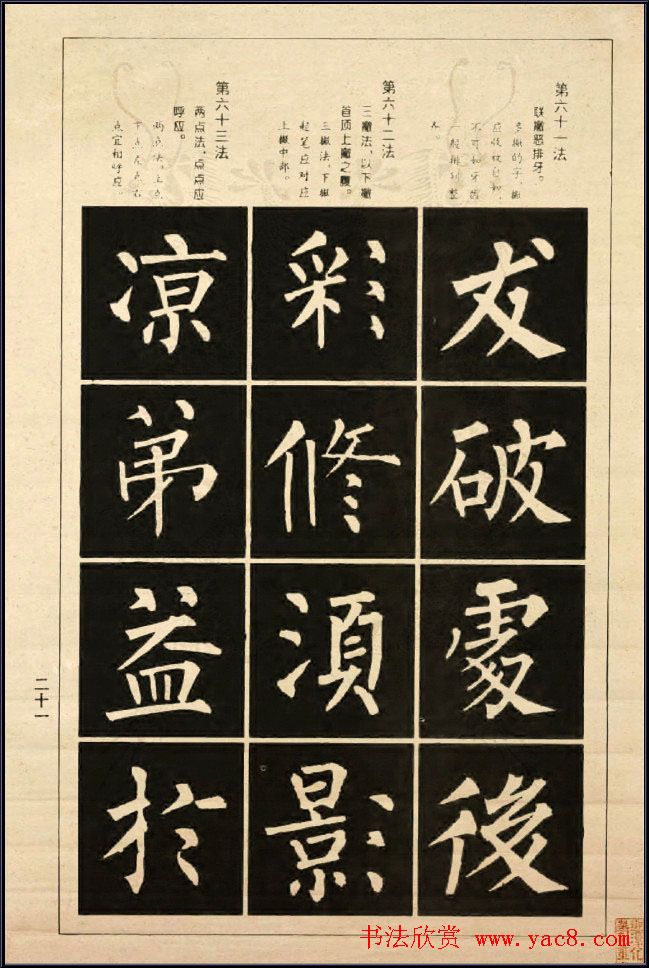 第六十一法
联撇恶排牙。
多撇的字，撇
应收放自如，
不可如牙齿
一般排列整
齐。
友
破
處
後
第六十二法
三撇法，以下撇
首顶上撇之腹。
三撇法，下撇
起笔应对应
上撇中部。
彩
修
須
影
第六十三法
两点法，点点应
呼应。
两点法，上点
下点左点右
点宜相呼应。
凉
弟
益
於
二十一
书法欣赏 www.yac8.com